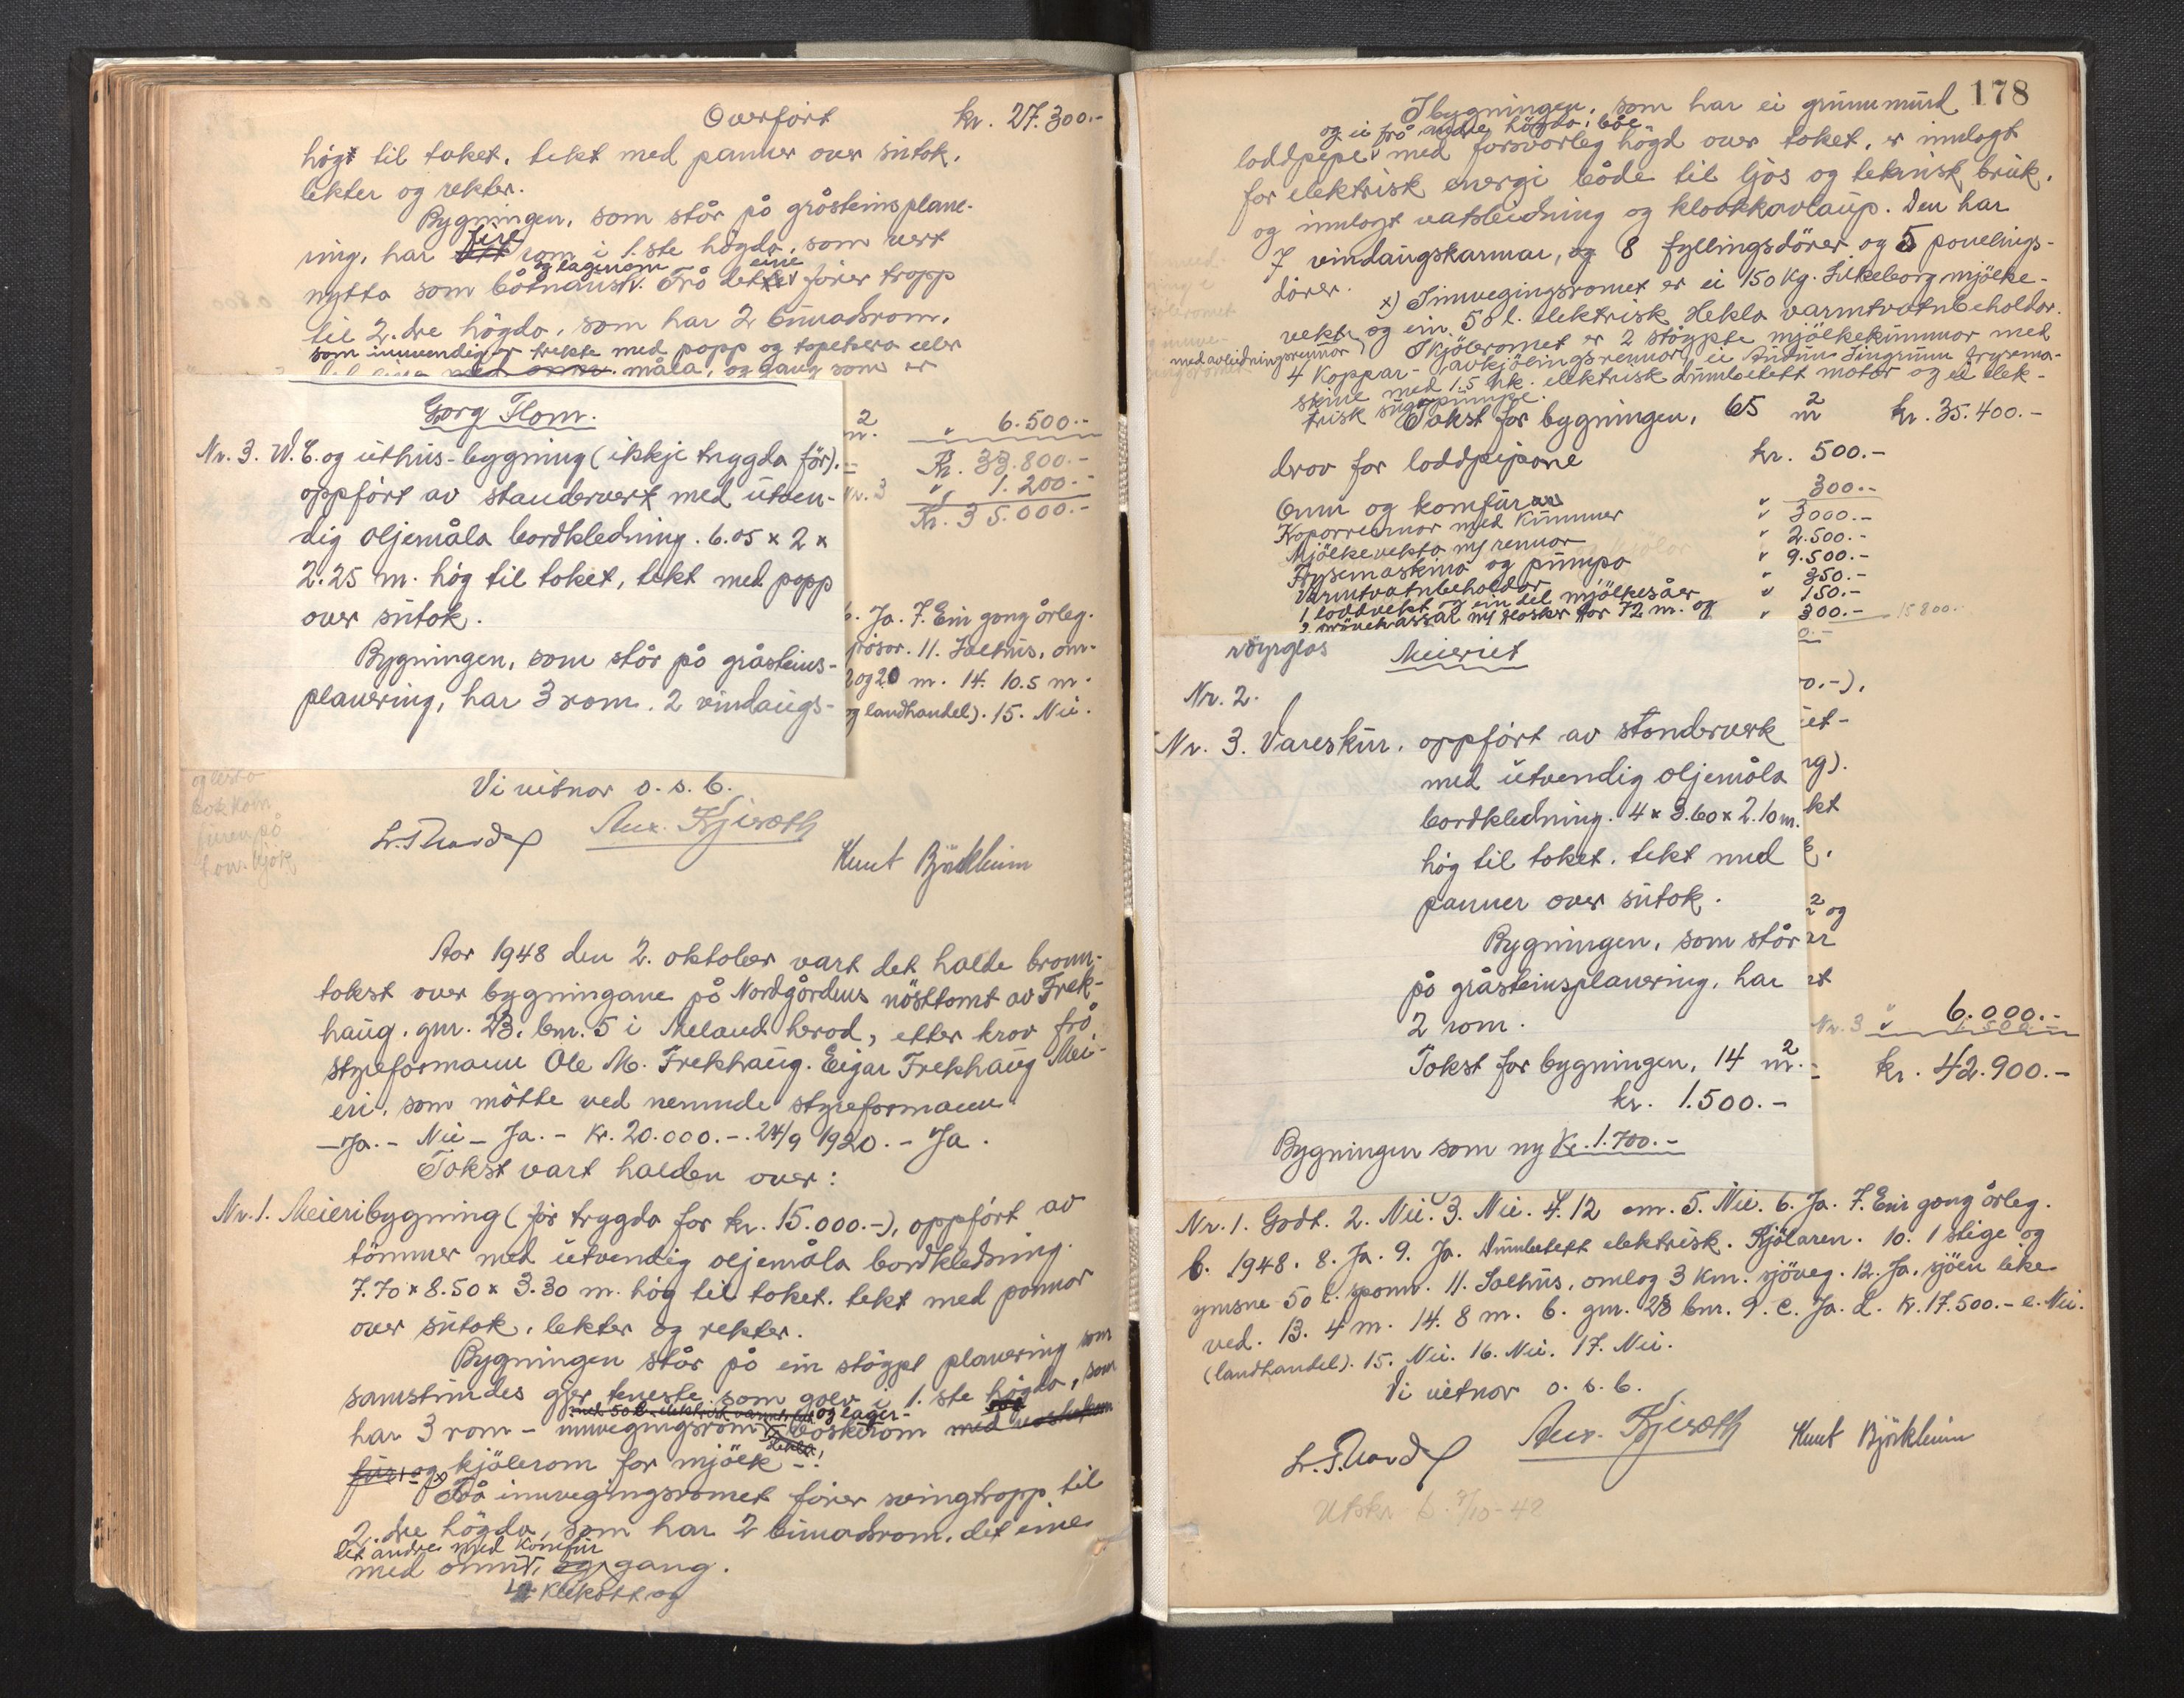 Overført kr. 27.300.-
høgt til taket, tekt med panner over sutak,
lekter og rekter.
Bygningen, som står på gråsteinsplane-
ring, har fire rom i 1.ste høgda, som vert
og lagerrom eine
nytta som båtnaust. Frå dette fører tropp
til 2.dre høgda, som har 2 bueadsrom,
som innvendig er trekte med papp og tapetsera eller
måla, og gang som er
Gorg Flom.
Nr. 3. W.C. og uthus-bygning (ikkje trygda før),
oppført av standerverk med utven-
dig oljemåla bordkledning. 6.05 x 2 x
2.25 m. høg til taket, tekt med papp
over sutak.
Bygningen, som står på gråsteins-
planering, har 3 rom. 2 vindaugs-
m². " 6.500.-
Kr. 33.800.-
Nr. 3 " 1.200.-
Kr. 35.000.-
6. Ja. 7. Ein gong årleg.
11. Salhus, om-
og 20 m. 14. 10.5 m.
og landhandel). 15. Nei.
Vi vitnar o.s.b.
Aux. Kjeroth
Knut Bjørkheim
Aar 1948 den 2. oktober vart det halde brann-
takst over bygningane på Nordgårdens nösttomt av Frek-
haug, gnr. 23, bnr. 5 i Meland herad, etter krav frå
styreformann Ole M. Frekhaug. Eigar Frekhaug Mei-
eri, som møtte ved nemnde styreformann.
- Ja. - Nei - Ja. - Kr. 20.000.-. 24/9 1920. - Ja.
Takst vart halden over:
Nr. 1. Meieribygning (før trygda for kr. 15.000.-), oppført av
tömmer med utvendig oljemåla bordkledning.
7.70 x 8.50 x 3.30 m. høg til taket, tekt med pannor
over sutak, lekter og rekter.
Bygningen står på ein støypt planering som
samstundes gjer teneste som golv i 1.ste høgda, som
og lager-
har 3 rom - innvegingsrom, vaskerom
og kjølerom for mjölk.
x) Frå innvegingsromet fører svingtropp til
2.dre høgda, som har 2 bueadsrom, det eine
det andre med komfur
med omn, gang.
kleskott og
178
I bygningen, som har ei grunnmurd
og ei frå andre høgda, båe
loddpipe med forsvarleg høgd over taket, er innlagt
for elektrisk energi både til ljos og teknisk bruk,
og innlagt vatsleidning og kloakkavlaup. Den har
7 vindaugskarmar, 8 fyllingsdörer og 5 panelings-
dörer.
x) I innvegingsromet er ei 150 kg. Silkeborg mjölke-
vekt og ein 50 l. elektrisk Hekla varmtvatnbeholdar.
I kjöleromet er 2 støypte mjölkekummor med
med avleidningsrennor
4 koppar-avkjölingsrennor, ei Sudens Singrunn frysema-
skine med 1.5 hk. elektrisk dunbetett motor og ei elek-
trisk sugepumpe.
Takst for bygningen, 65 m² kr. 35.400.-
Herav for loddpipone kr. 500.-
Omn og komfur " 300.-
Koparrennor med kummer " 3000.-
Mjölkevekta m/ rennor " 2.500.-
Frysemaskina og pumpa " 9.500.-
Varmtvatnbeholdar " 350.-
1 loddvekt og ein del mjölkesåer " 150.-
2 prövekassar m/ flasker for 72 m. og " 300.- 15800.-
röyrglas
Meieriet
Nr. 2.
Nr. 3. Vareskur, oppført av standerverk
med utvendig oljemåla
bordkledning. 4 x 3.60 x 2.10 m.
høg til taket, tekt med
panner over sutak.
Bygningen, som står
på gråsteinsplanering, har
2 rom.
Takst for bygningen, 14 m².
kr. 1.500.-
Bygningen som ny Kr. 1.700.-
" 6.000.-
Nr. 3 " 1.500.-
kr. 42.900.-
Nr. 1. Godt. 2. Nei. 3. Nei. 4. 12 cm. 5. Nei. 6. Ja. 7. Ein gong årleg.
b. 1948. 8. Ja. 9. Ja. Dunbetett elektrisk. Kjölaren. 10. 1 stige og
ymsne 50 l. spann. 11. Salhus, omlag 3 km. sjöveg. 12. Ja, sjöen like
ved. 13. 4 m. 14. 8 m. b. gnr. 23 bnr. 9. c. Ja. d. Kr. 17.500.- e. Nei.
(landhandel). 15. Nei. 16. Nei. 17. Nei.
Vi vitnar o.s.b.
Aux. Kjeroth
Knut Bjørkheim
Utskr. 7/10-48